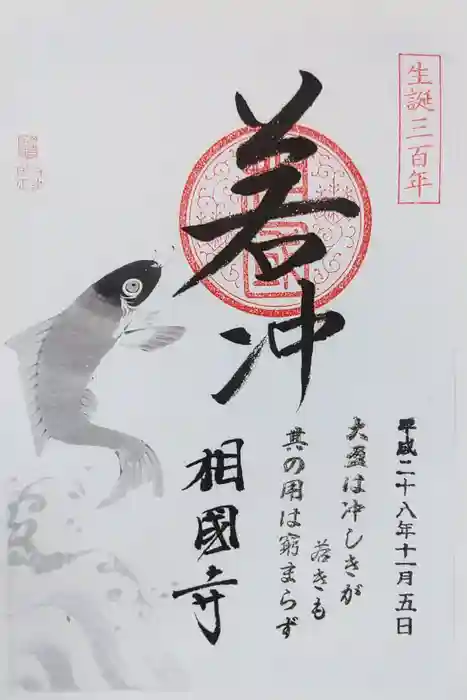 生誕三百年
若冲
平成二十八年十一月五日
大盈は冲しきが
若きも
其の用は窮まらず
相國寺